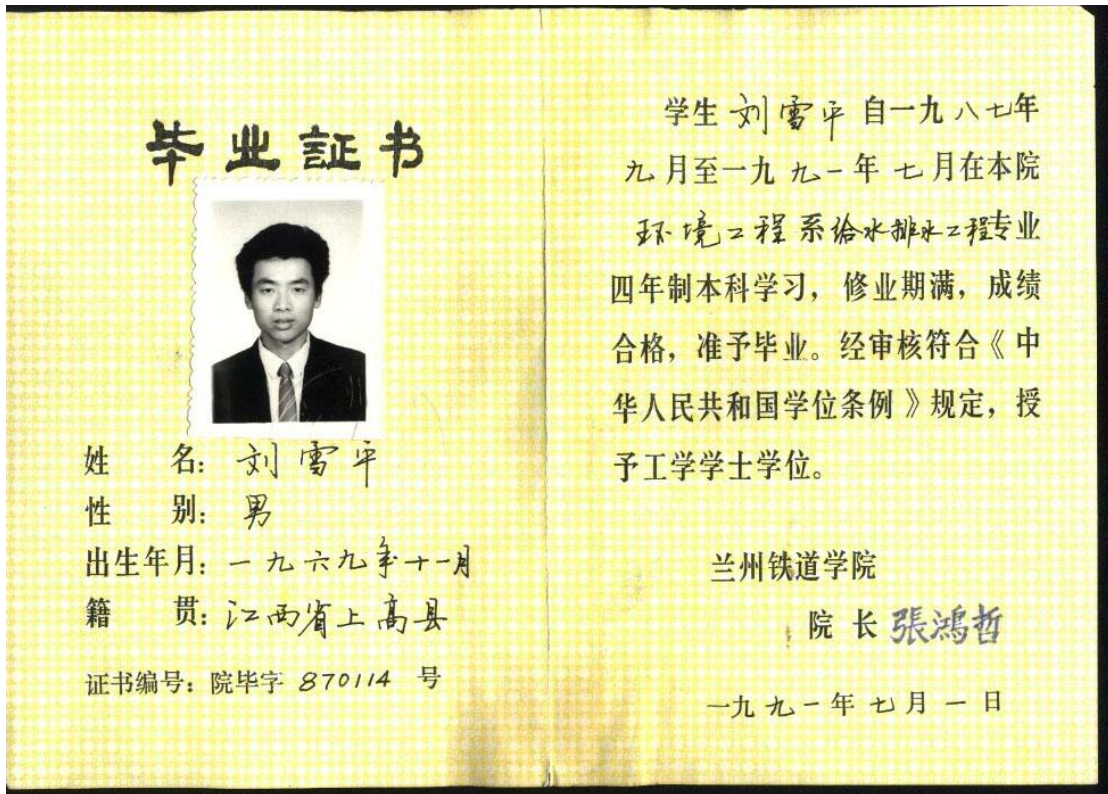 毕业証书
姓 名：刘雪平
性 别：男
出生年月：一九六九年十一月
籍 贯：江西省上高县
证书编号：院毕字 870114 号
学生 刘雪平 自一九八七年
九月至一九九一年七月在本院
环境工程系给水排水工程专业
四年制本科学习，修业期满，成绩
合格，准予毕业。经审核符合《中
华人民共和国学位条例》规定，授
予工学学士学位。
兰州铁道学院
院长 張鴻哲
一九九一年七月一日